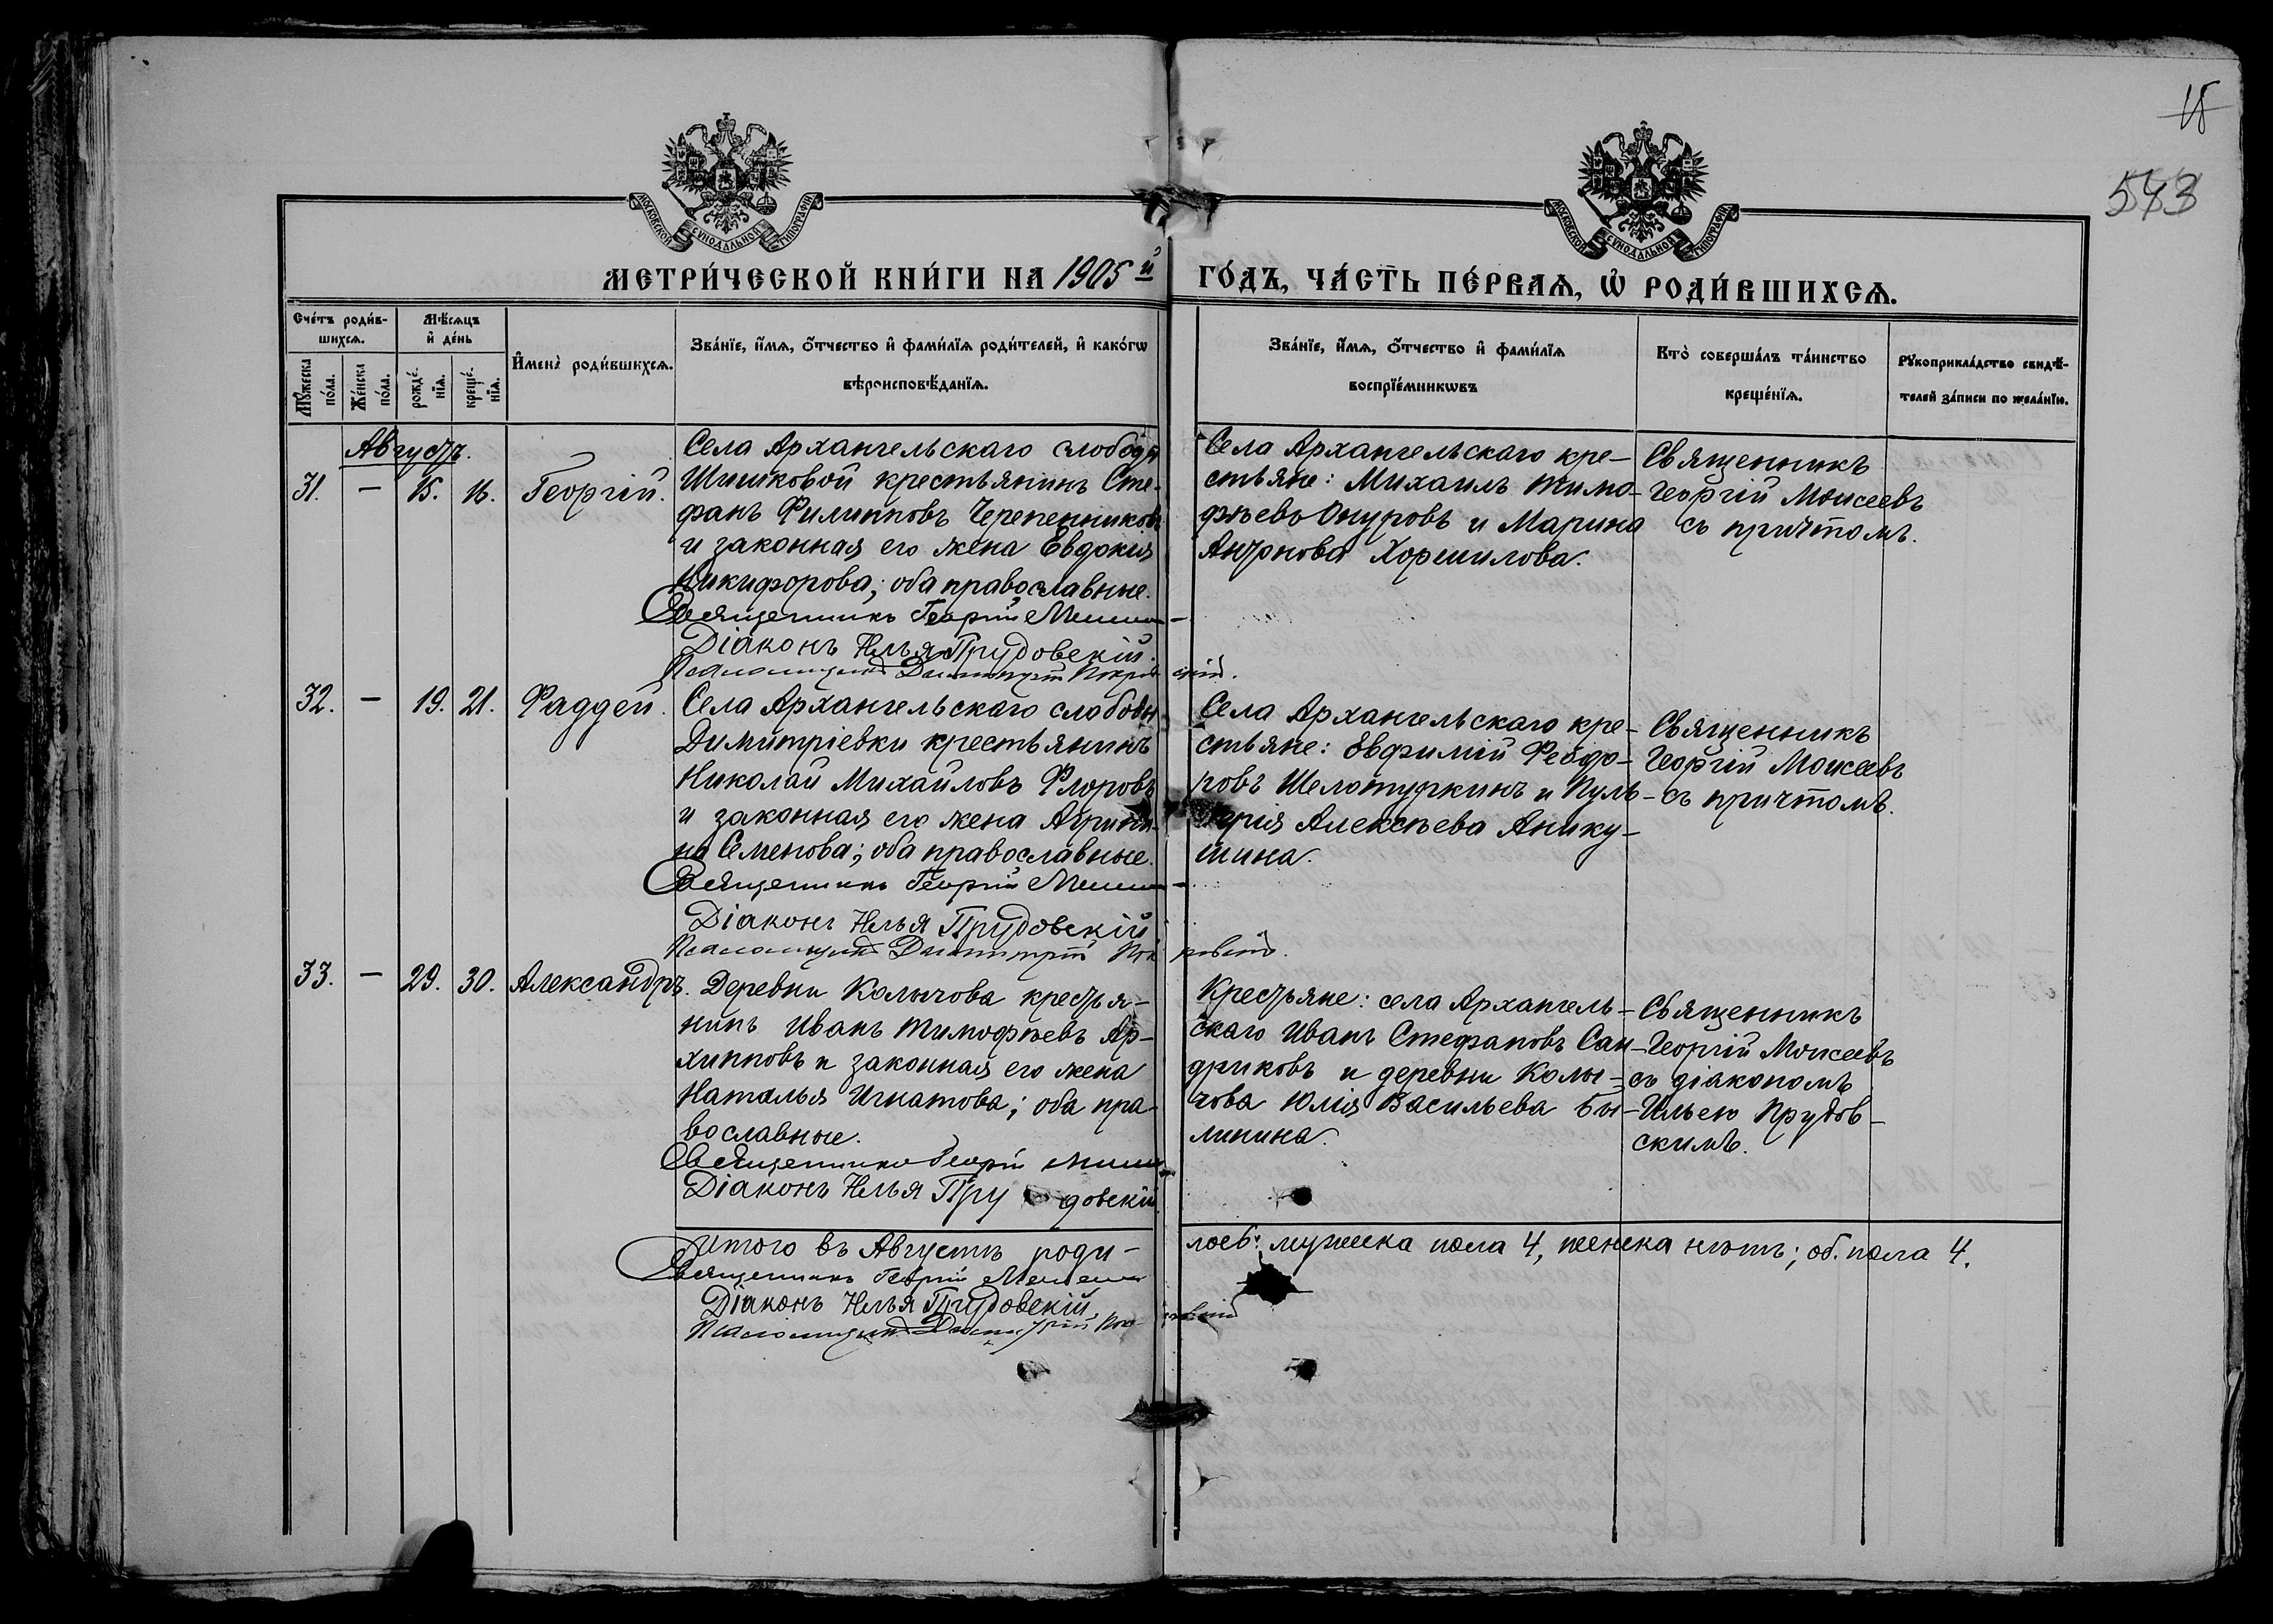 18
573
МОСКОВСКОЙ СѴНОДАЛЬНОЙ ТИПОГРАФІИ
МОСКОВСКОЙ СѴНОДАЛЬНОЙ ТИПОГРАФІИ
МЕТРИ́ЧЕСКОЙ КНИ́ГИ НА 1905 й
ГО́ДЪ, ЧА́СТЬ ПЕ́РВАѦ, Ѿ РОДИ́ВШИХСѦ.
Сче́тъ роди́в-
шихсѧ.
Мꙋ́жеска по́ла.
Же́нска по́ла.
Мѣ́сѧцъ
и҆ де́нь
рожде́-
нїѧ.
креще́-
нїѧ.
И҆мена̀ роди́вшихсѧ.
Зва́нїе, и҆́мѧ, ѻ҆́тчество и҆ фами́лїѧ роди́телей, и҆ како́гѡ
вѣроисповѣ́данїѧ.
Зва́нїе, и҆́мѧ, ѻ҆́тчество и҆ фами́лїѧ
воспрїе́мникѡвъ
Кто̀ соверша́лъ та́инство
креще́нїѧ.
Рꙋкоприкла́дство свидѣ́-
телей за́писи по жела́нїю.
Августъ.
31. — 15. 16. Георгій.
Села Архангельскаго слободы
Шишковой крестьянинъ Сте-
фанъ Филипповъ Черепенниковъ
и законная его жена Евдокія
Никифорова; оба православные.
Священникъ Георгій Моисеевъ
Діаконъ Илья Прудовскій.
Псаломщикъ Димитрій Покровскій.
Села Архангельскаго кре-
стьяне: Михаилъ Тимо-
фѣевъ Онуровъ и Марина
Антонова Хоршилова.
Священникъ
Георгій Моисеевъ
съ причтомъ.
32. — 19. 21. Фаддей.
Села Архангельскаго слободы
Димитріевки крестьянинъ
Николай Михайловъ Флоровъ
и законная его жена Агрипи-
на Семенова; оба православные.
Священникъ Георгій Моисеевъ
Діаконъ Илья Прудовскій
Псаломщикъ Димитрій Покровскій.
Села Архангельскаго кре-
стьяне: Евфимій Феодо-
ровъ Шелопуркинъ и Пуль-
херія Алексѣева Анику-
шина.
Священникъ
Георгій Моисеевъ
съ причтомъ.
33. — 29. 30. Александръ.
Деревни Колычова крестья-
нинъ Иванъ Тимофѣевъ Ар-
хипповъ и законная его жена
Наталья Игнатова; оба пра-
вославные.
Священникъ Георгій Моисеевъ
Діаконъ Илья Прудовскій
Крестьяне: села Архангель-
скаго Иванъ Стефановъ Сан-
дриковъ и деревни Колы-
чова Юлія Васильева Бы-
линина.
Священникъ
Георгій Моисеевъ
съ діакономъ
Ильею Прудов-
скимъ.
Итого въ Августѣ роди-
лось: мужска пола 4, женска нѣтъ; об. пола 4.
Священникъ Георгій Моисеевъ
Діаконъ Илья Прудовскій.
Псаломщикъ Димитрій Покровскій